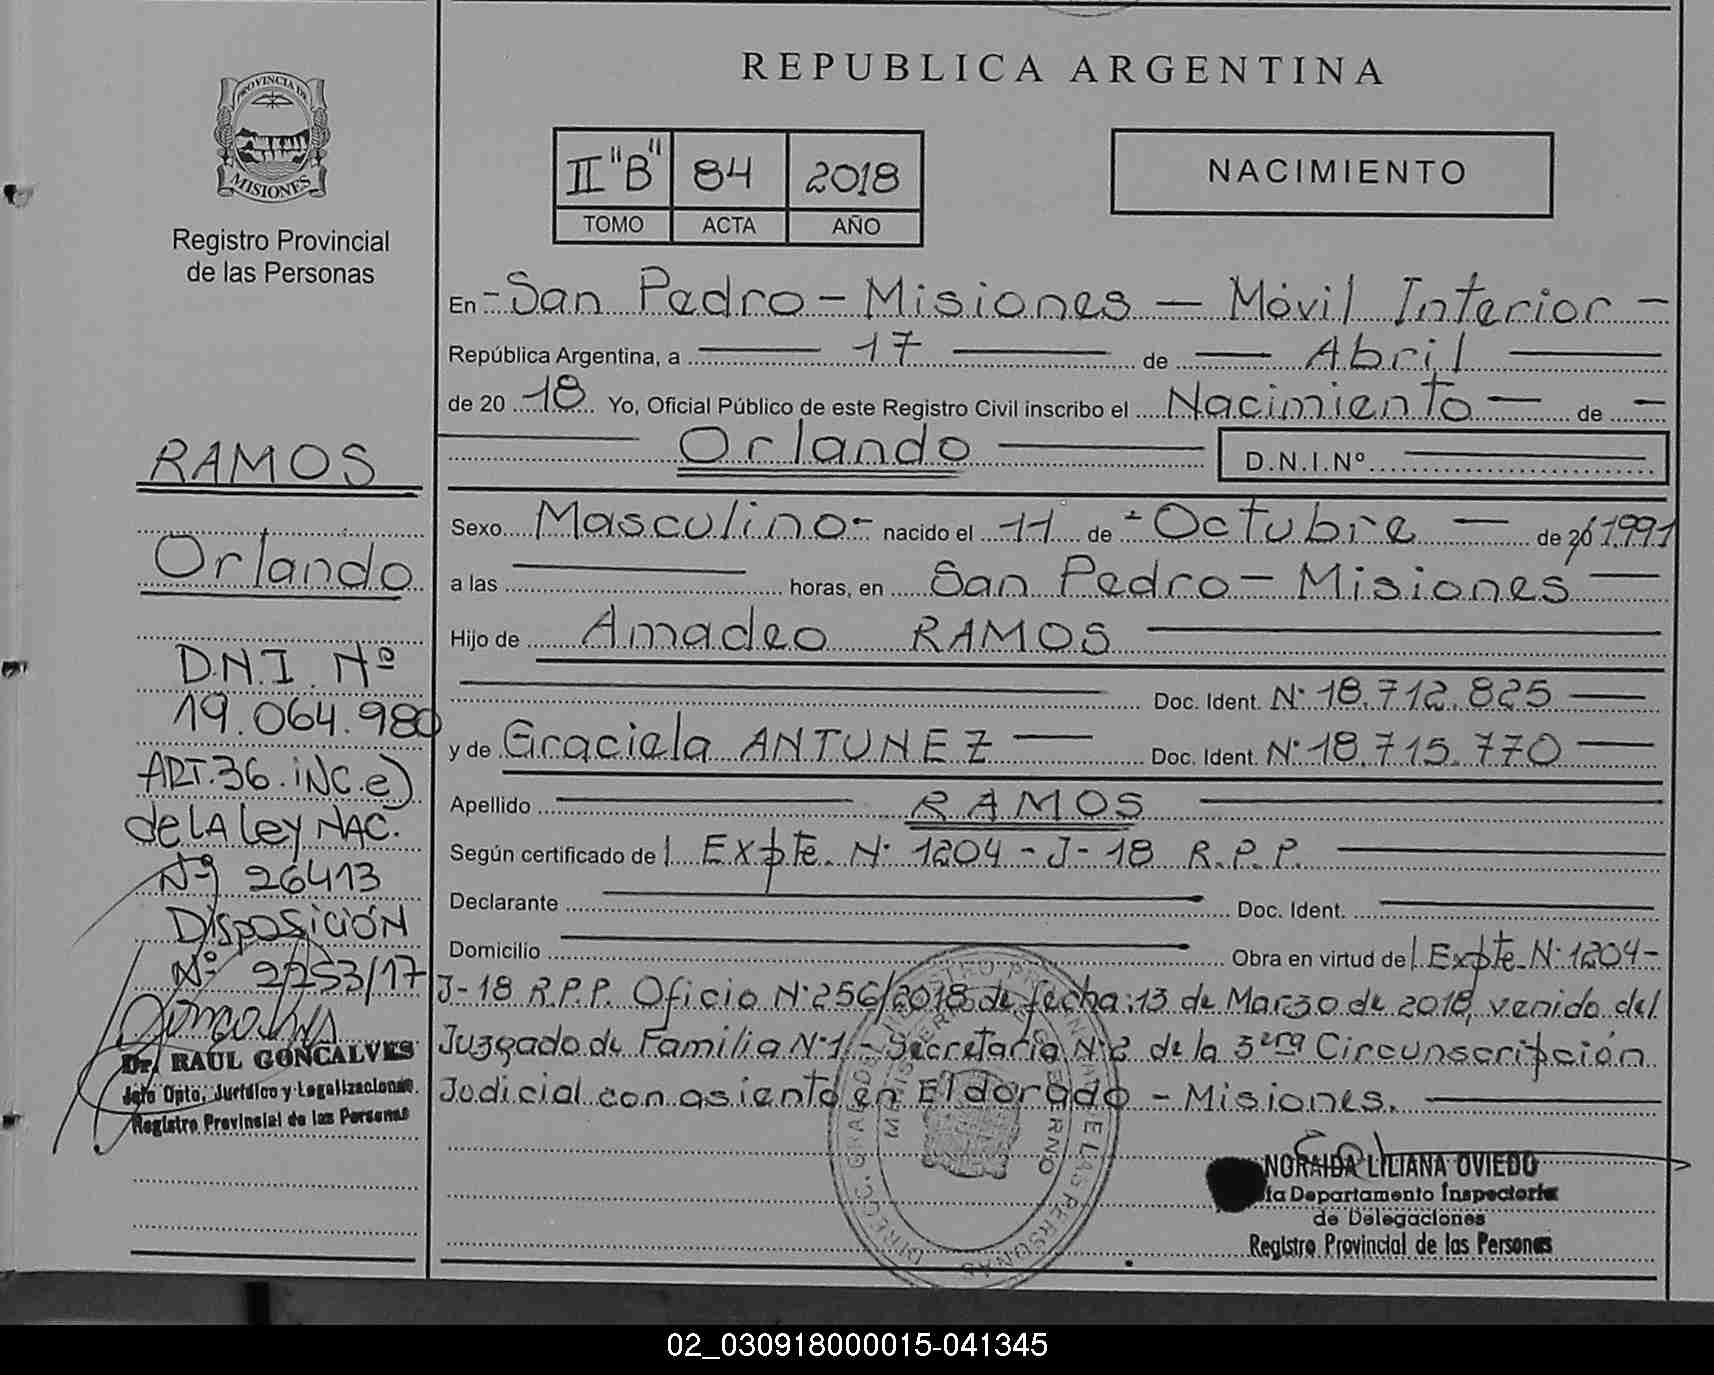 REPUBLICA ARGENTINA
PROVINCIA DE
MISIONES
Registro Provincial
de las Personas
II "B" 84 2018
TOMO ACTA AÑO
NACIMIENTO
En - San Pedro - Misiones - Móvil Interior -
República Argentina, a 17 de Abril
de 20 18 Yo, Oficial Público de este Registro Civil inscribo el Nacimiento - de -
Orlando D.N.I.Nº
Sexo Masculino - nacido el 11 de - Octubre - de 20 1991
a las horas, en San Pedro - Misiones
Hijo de Amadeo RAMOS
Doc. Ident. N° 18.712.825
y de Graciela ANTUNEZ Doc. Ident. N° 18.715.770
Apellido RAMOS
Según certificado de l Expte. N° 1204 - J - 18 R.P.P.
Declarante Doc. Ident.
Domicilio Obra en virtud de l Expte. N° 1204 -
J - 18 R.P.P. Oficio N° 256/2018 de fecha: 13 de Marzo de 2018, venido del
Juzgado de Familia N° 1 - Secretaría N° 2 de la 3era Circunscripción
Judicial con asiento en Eldorado - Misiones.
RAMOS
Orlando
D.N.I. Nº
19.064.980
ART. 36. iNC. e)
de LA Ley NAC.
Nº 26413
DisposiciÓN
Nº 2253/17
Dr. RAUL GONCALVES
Jefe Dpto. Jurídico y Legalizaciones
Registro Provincial de las Personas
NORAIDA LILIANA OVIEDO
Departamento Inspectoría
de Delegaciones
Registro Provincial de las Personas
02_030918000015-041345